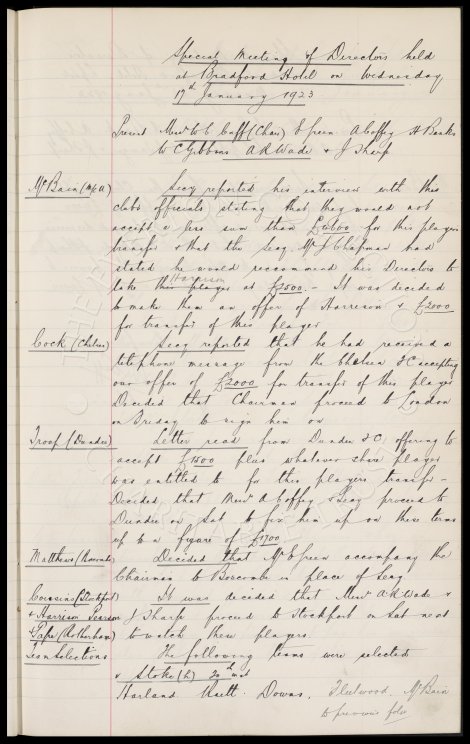 Special Meeting of Directors held
at Bradford Hotel on Wednesday
17th January 1923
Present Messrs W C Cuff (Chair) E Green A Coffey H Banks
W C Gibbins A R Wade & J Sharp
McBain (M/c U)
Secy reported his interview with this
clubs officials stating that they would not
accept a less sum than £4600 for this players
transfer & that the Secy Mr J Chapman had
stated he would recommend his Directors to
take Harrison at £2500. - It was decided
to make them an offer of Harrison & £2000
for transfer of this player
Cock (Chelsea)
Secy reported that he had received a
telephone message from the Chelsea FC accepting
our offer of £2000 for transfer of this player
Decided that Chairman proceed to London
on Friday to sign him on
Troop (Dundee)
Letter read from Dundee FC offering to
accept £1500 plus whatever share player
was entitled to for this players transfer -
Decided that Messrs A Coffey & Secy proceed to
Dundee on Sat to fix him up on these terms
up to a figure of £1700
Matthews (Boscombe)
Decided that Mr E Green accompany the
Chairman to Boscombe in place of Secy
Cousins (Stockport)
& Harrison Pearson
& Pape (Rotherham)
It was decided that Messrs A R Wade &
J Sharp proceed to Stockport on Sat next
to watch these players.
Team Selections
The following teams were selected
v Stoke (h) 20th inst
Harland Raitt. Downs, Fleetwood, McBain
to previous folio